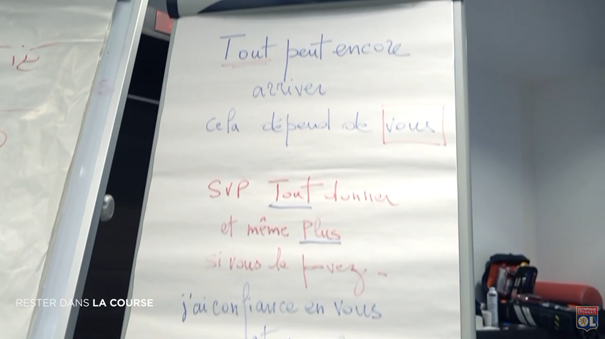 Tout peut encore
arriver
cela dépend de vous
SVP Tout donner
et même Plus
si vous le pouvez...
j'ai confiance en vous
RESTER DANS LA COURSE
OL